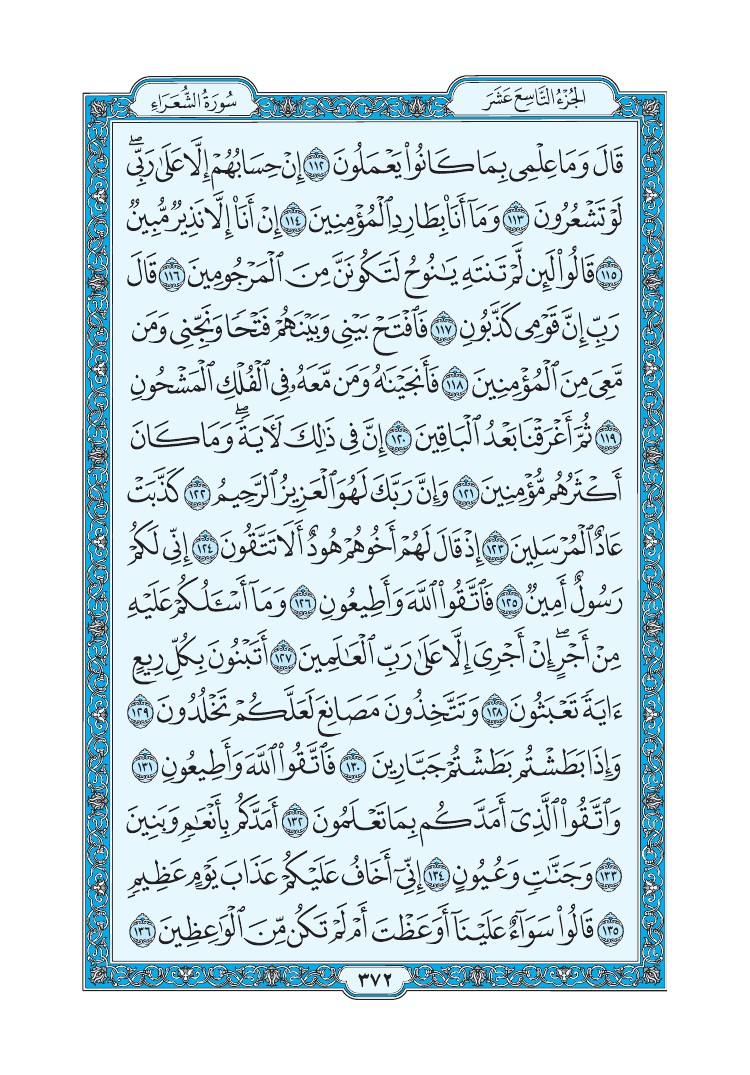 الجُزْءُ التَّاسِعَ عَشَرَ
سُورَةُ الشُّعَرَاءِ
قَالَ وَمَا عِلْمِي بِمَا كَانُوا۟ يَعْمَلُونَ ١١٢ إِنْ حِسَابُهُمْ إِلَّا عَلَىٰ رَبِّىۖ
لَوْ تَشْعُرُونَ ١١٣ وَمَآ أَنَا۠ بِطَارِدِ ٱلْمُؤْمِنِينَ ١١٤ إِنْ أَنَا۠ إِلَّا نَذِيرٌ مُّبِينٌ
١١٥ قَالُوا۟ لَئِن لَّمْ تَنتَهِ يَٰنُوحُ لَتَكُونَنَّ مِنَ ٱلْمَرْجُومِينَ ١١٦ قَالَ
رَبِّ إِنَّ قَوْمِى كَذَّبُونِ ١١٧ فَٱفْتَحْ بَيْنِى وَبَيْنَهُمْ فَتْحًا وَنَجِّنِى وَمَن
مَّعِىَ مِنَ ٱلْمُؤْمِنِينَ ١١٨ فَأَنجَيْنَٰهُ وَمَن مَّعَهُۥ فِى ٱلْفُلْكِ ٱلْمَشْحُونِ
١١٩ ثُمَّ أَغْرَقْنَا بَعْدُ ٱلْبَاقِينَ ١٢٠ إِنَّ فِى ذَٰلِكَ لَءَايَةًۖ وَمَا كَانَ
أَكْثَرُهُم مُّؤْمِنِينَ ١٢١ وَإِنَّ رَبَّكَ لَهُوَ ٱلْعَزِيزُ ٱلرَّحِيمُ ١٢٢ كَذَّبَتْ
عَادٌ ٱلْمُرْسَلِينَ ١٢٣ إِذْ قَالَ لَهُمْ أَخُوهُمْ هُودٌ أَلَا تَتَّقُونَ ١٢٤ إِنِّى لَكُمْ
رَسُولٌ أَمِينٌ ١٢٥ فَٱتَّقُوا۟ ٱللَّهَ وَأَطِيعُونِ ١٢٦ وَمَآ أَسْـَٔلُكُمْ عَلَيْهِ
مِنْ أَجْرٍۖ إِنْ أَجْرِىَ إِلَّا عَلَىٰ رَبِّ ٱلْعَٰلَمِينَ ١٢٧ أَتَبْنُونَ بِكُلِّ رِيعٍ
ءَايَةً تَعْبَثُونَ ١٢٨ وَتَتَّخِذُونَ مَصَانِعَ لَعَلَّكُمْ تَخْلُدُونَ ١٢٩
وَإِذَا بَطَشْتُم بَطَشْتُمْ جَبَّارِينَ ١٣٠ فَٱتَّقُوا۟ ٱللَّهَ وَأَطِيعُونِ ١٣١
وَٱتَّقُوا۟ ٱلَّذِىٓ أَمَدَّكُم بِمَا تَعْلَمُونَ ١٣٢ أَمَدَّكُم بِأَنْعَٰمٍ وَبَنِينَ
١٣٣ وَجَنَّٰتٍ وَعُيُونٍ ١٣٤ إِنِّىٓ أَخَافُ عَلَيْكُمْ عَذَابَ يَوْمٍ عَظِيمٍ
١٣٥ قَالُوا۟ سَوَآءٌ عَلَيْنَآ أَوَعَظْتَ أَمْ لَمْ تَكُن مِّنَ ٱلْوَٰعِظِينَ ١٣٦
٣٧٢